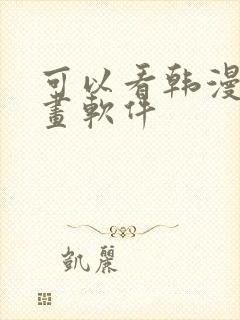 可以看韩漫
畫軟件
凱麗